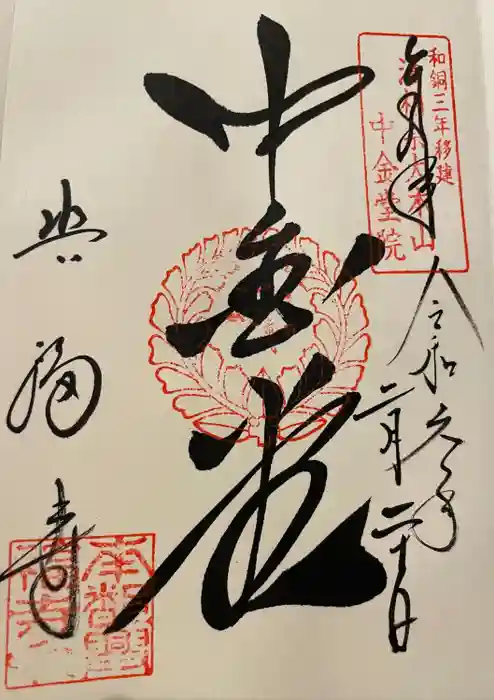 和銅三年移建
法相宗大本山
中金堂院
奉拝
令和年
二月二十日
中金堂
興福寺